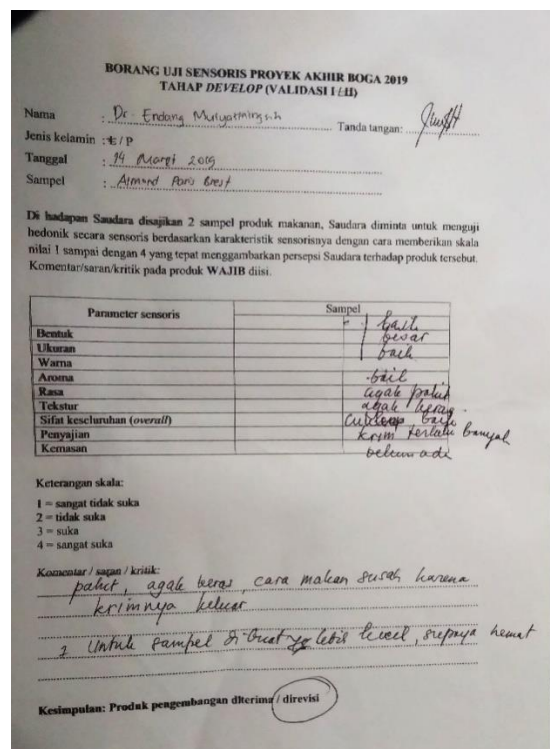 BORANG UJI SENSORIS PROYEK AKHIR BOGA 2019
TAHAP DEVELOP (VALIDASI I /II)
Nama : Dr. Endang Mulyatiningsih Tanda tangan:
Jenis kelamin : L / P
Tanggal : 14 Maret 2019
Sampel : Almond Paris Brest
Di hadapan Saudara disajikan 2 sampel produk makanan, Saudara diminta untuk menguji
hedonik secara sensoris berdasarkan karakteristik sensorisnya dengan cara memberikan skala
nilai 1 sampai dengan 4 yang tepat menggambarkan persepsi Saudara terhadap produk tersebut.
Komentar/saran/kritik pada produk WAJIB diisi.
Parameter sensoris Sampel
Bentuk baik
Ukuran besar
Warna baik
Aroma baik
Rasa agak pahit
Tekstur agak keras
Sifat keseluruhan (overall) cukup baik
Penyajian krim terlalu banyak
Kemasan belum ada
Keterangan skala:
1 = sangat tidak suka
2 = tidak suka
3 = suka
4 = sangat suka
Komentar / saran / kritik:
pahit, agak keras, cara makan susah karena
krimnya keluar
2 Untuk sampel di buat yg lebih kecil, supaya hemat
Kesimpulan: Produk pengembangan diterima / direvisi